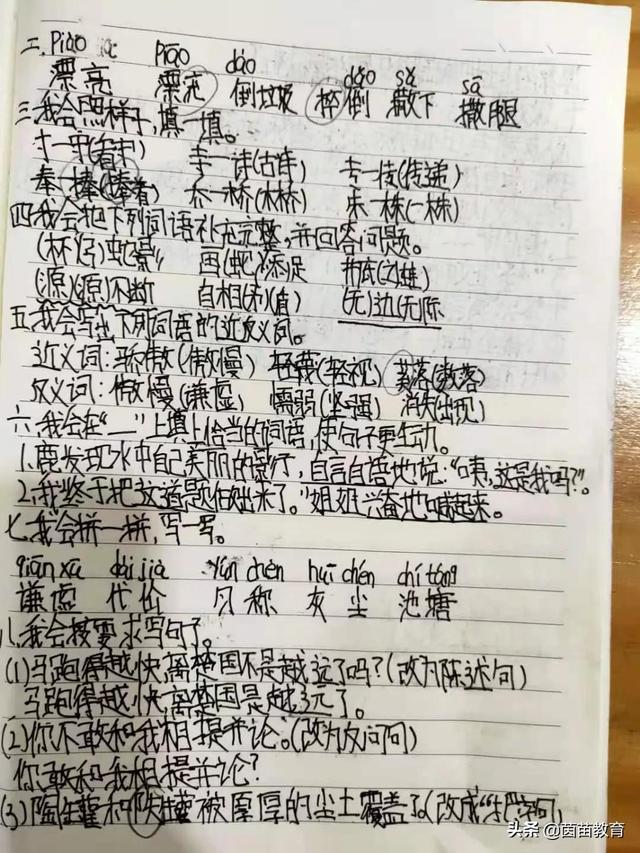 二、piào piāo dào dǎo sǎ sā
漂亮 漂流 倒垃圾 摔倒 撒下 撒腿
三、我会照样子,填一填。
寸—守(看守) 寺—诗(古诗) 专—传(传递)
奉—捧(捧着) 乔—桥(木桥) 朱—株(一株)
四、我会把下列词语补充完整,并回答问题。
(杯)(弓)蛇影 画(蛇)添足 井底(之)(蛙)
(源)(源)不断 自相(矛)(盾) (无)边(无)际
五、我会写出下列词语的近反义词。
近义词:骄傲(傲慢) 轻蔑(轻视) 奚落(数落)
反义词:傲慢(谦虚) 懦弱(坚强) 消失(出现)
六、我会在“—”上填上恰当的词语,使句子更生动。
1.鹿发现水中自己美丽的影子,自言自语地说:“咦,这是我吗?”。
2.“我终于把这道题做出来了。”姐姐兴奋地喊起来。
七、我会拼一拼,写一写。
qiān xū dài jià yún chèn huī chén chí táng
谦虚 代价 匀称 灰尘 池塘
八、我会按要求写句子。
(1)马跑得越快,离楚国不是越远了吗?(改为陈述句)
马跑得越快,离楚国是越远了。
(2)你不敢和我相提并论。(改为反问句)
你敢和我相提并论?
(3)陶罐和铁罐被厚厚的尘土覆盖了。(改成“把”字句)
头条 @茵苗教育